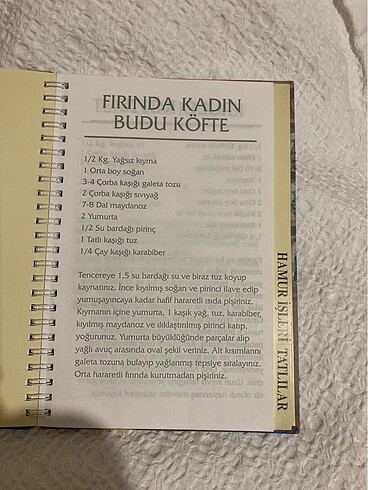 FIRINDA KADIN
BUDU KÖFTE
1/2 Kg. Yağsız kıyma
1 Orta boy soğan
3-4 Çorba kaşığı galeta tozu
2 Çorba kaşığı sıvıyağ
7-8 Dal maydanoz
2 Yumurta
1/2 Su bardağı pirinç
1 Tatlı kaşığı tuz
1/4 Çay kaşığı karabiber
Tencereye 1,5 su bardağı su ve biraz tuz koyup
kaynatınız. İnce kıyılmış soğan ve pirinci ilave edip
yumuşayıncaya kadar hafif hararetli ısıda pişiriniz.
Kıymanın içine yumurta, 1 kaşık yağ, tuz, karabiber,
kıyılmış maydanoz ve ılıklaştırılmış pirinci katıp,
yoğurunuz. Yumurta büyüklüğünde parçalar alıp
yağlı avuç arasında oval şekil veriniz. Alt kısımlarını
galeta tozuna bulayıp yağlanmış tepsiye sıralayınız.
Orta hararetli fırında kurutmadan pişiriniz.
HAMUR İŞLERİ, TATLILAR